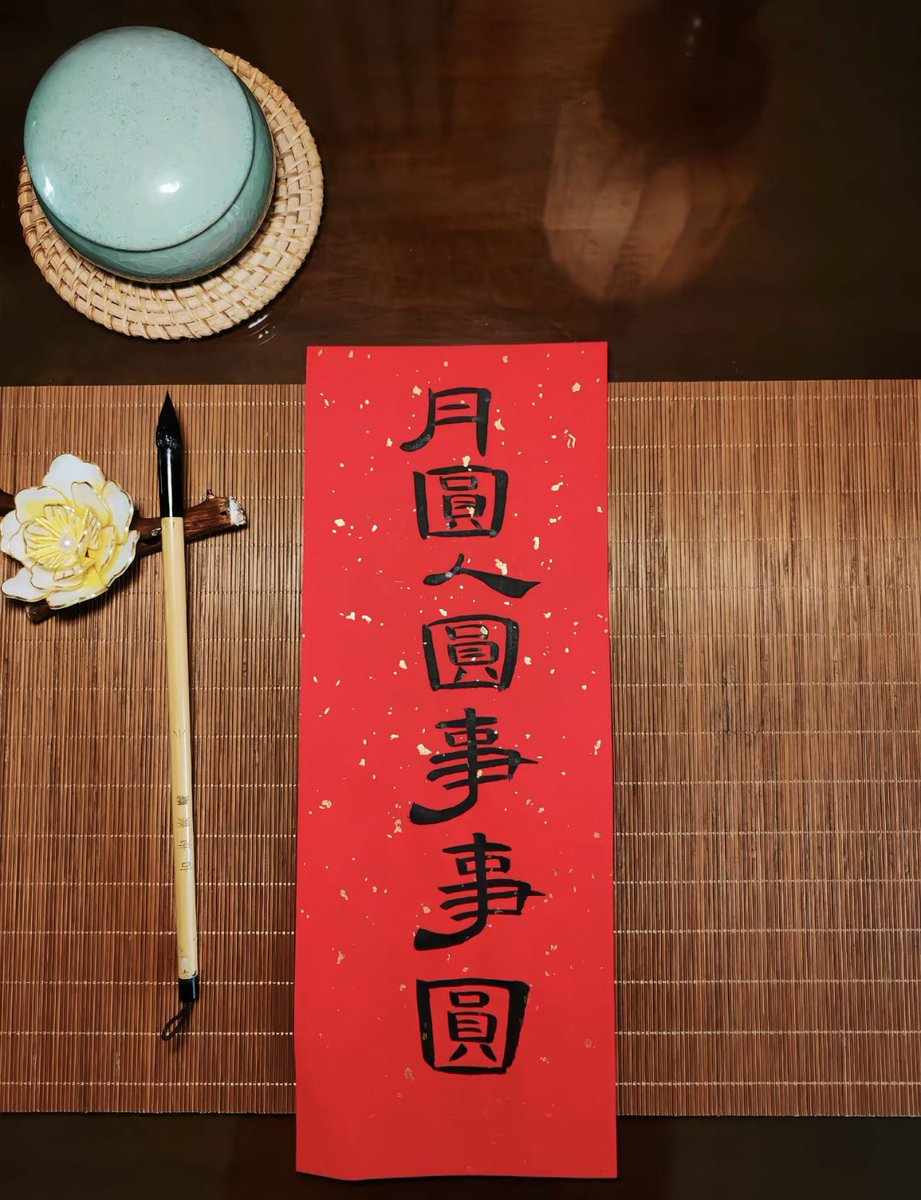 月圓人圓事事圓